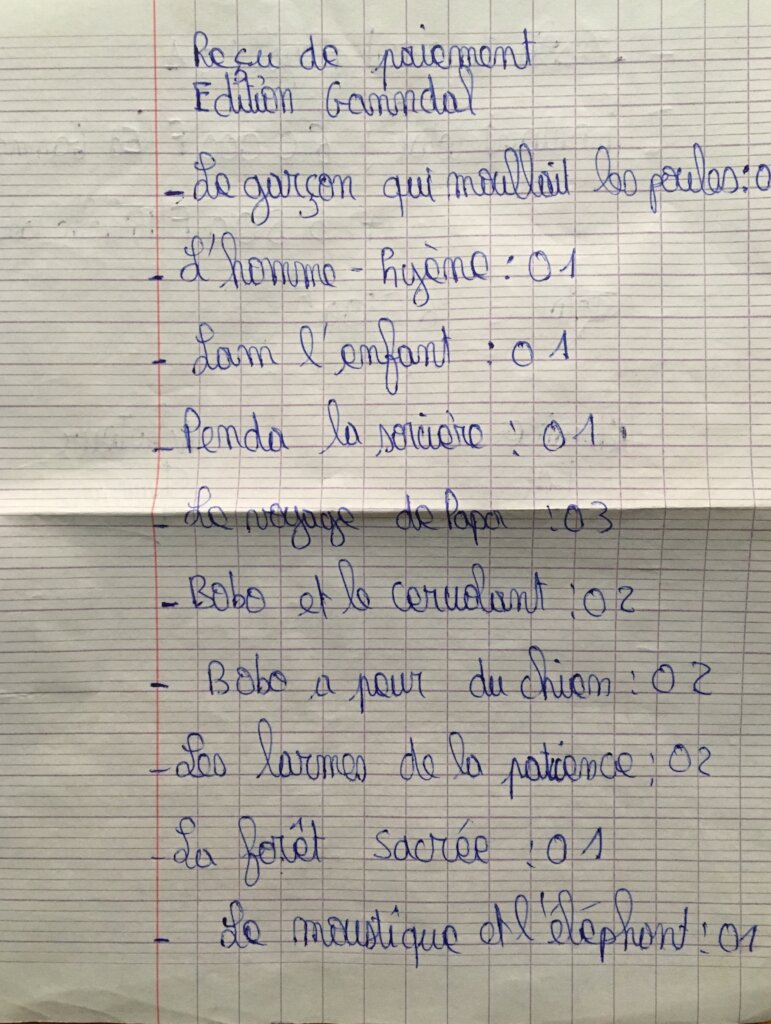 Reçu de paiement
Edition Ganndal
- Le garçon qui moullait les poules : 0
- L'homme - hyène : 01
- Lam l'enfant : 01
- Penda la sorcière : 01.
- Le voyage de Papa : 03
- Bobo et le cervolant : 02
- Bobo a peur du chien : 02
- Les larmes de la patience : 02
- La forêt sacrée : 01
- Le moustique et l'éléphant : 01